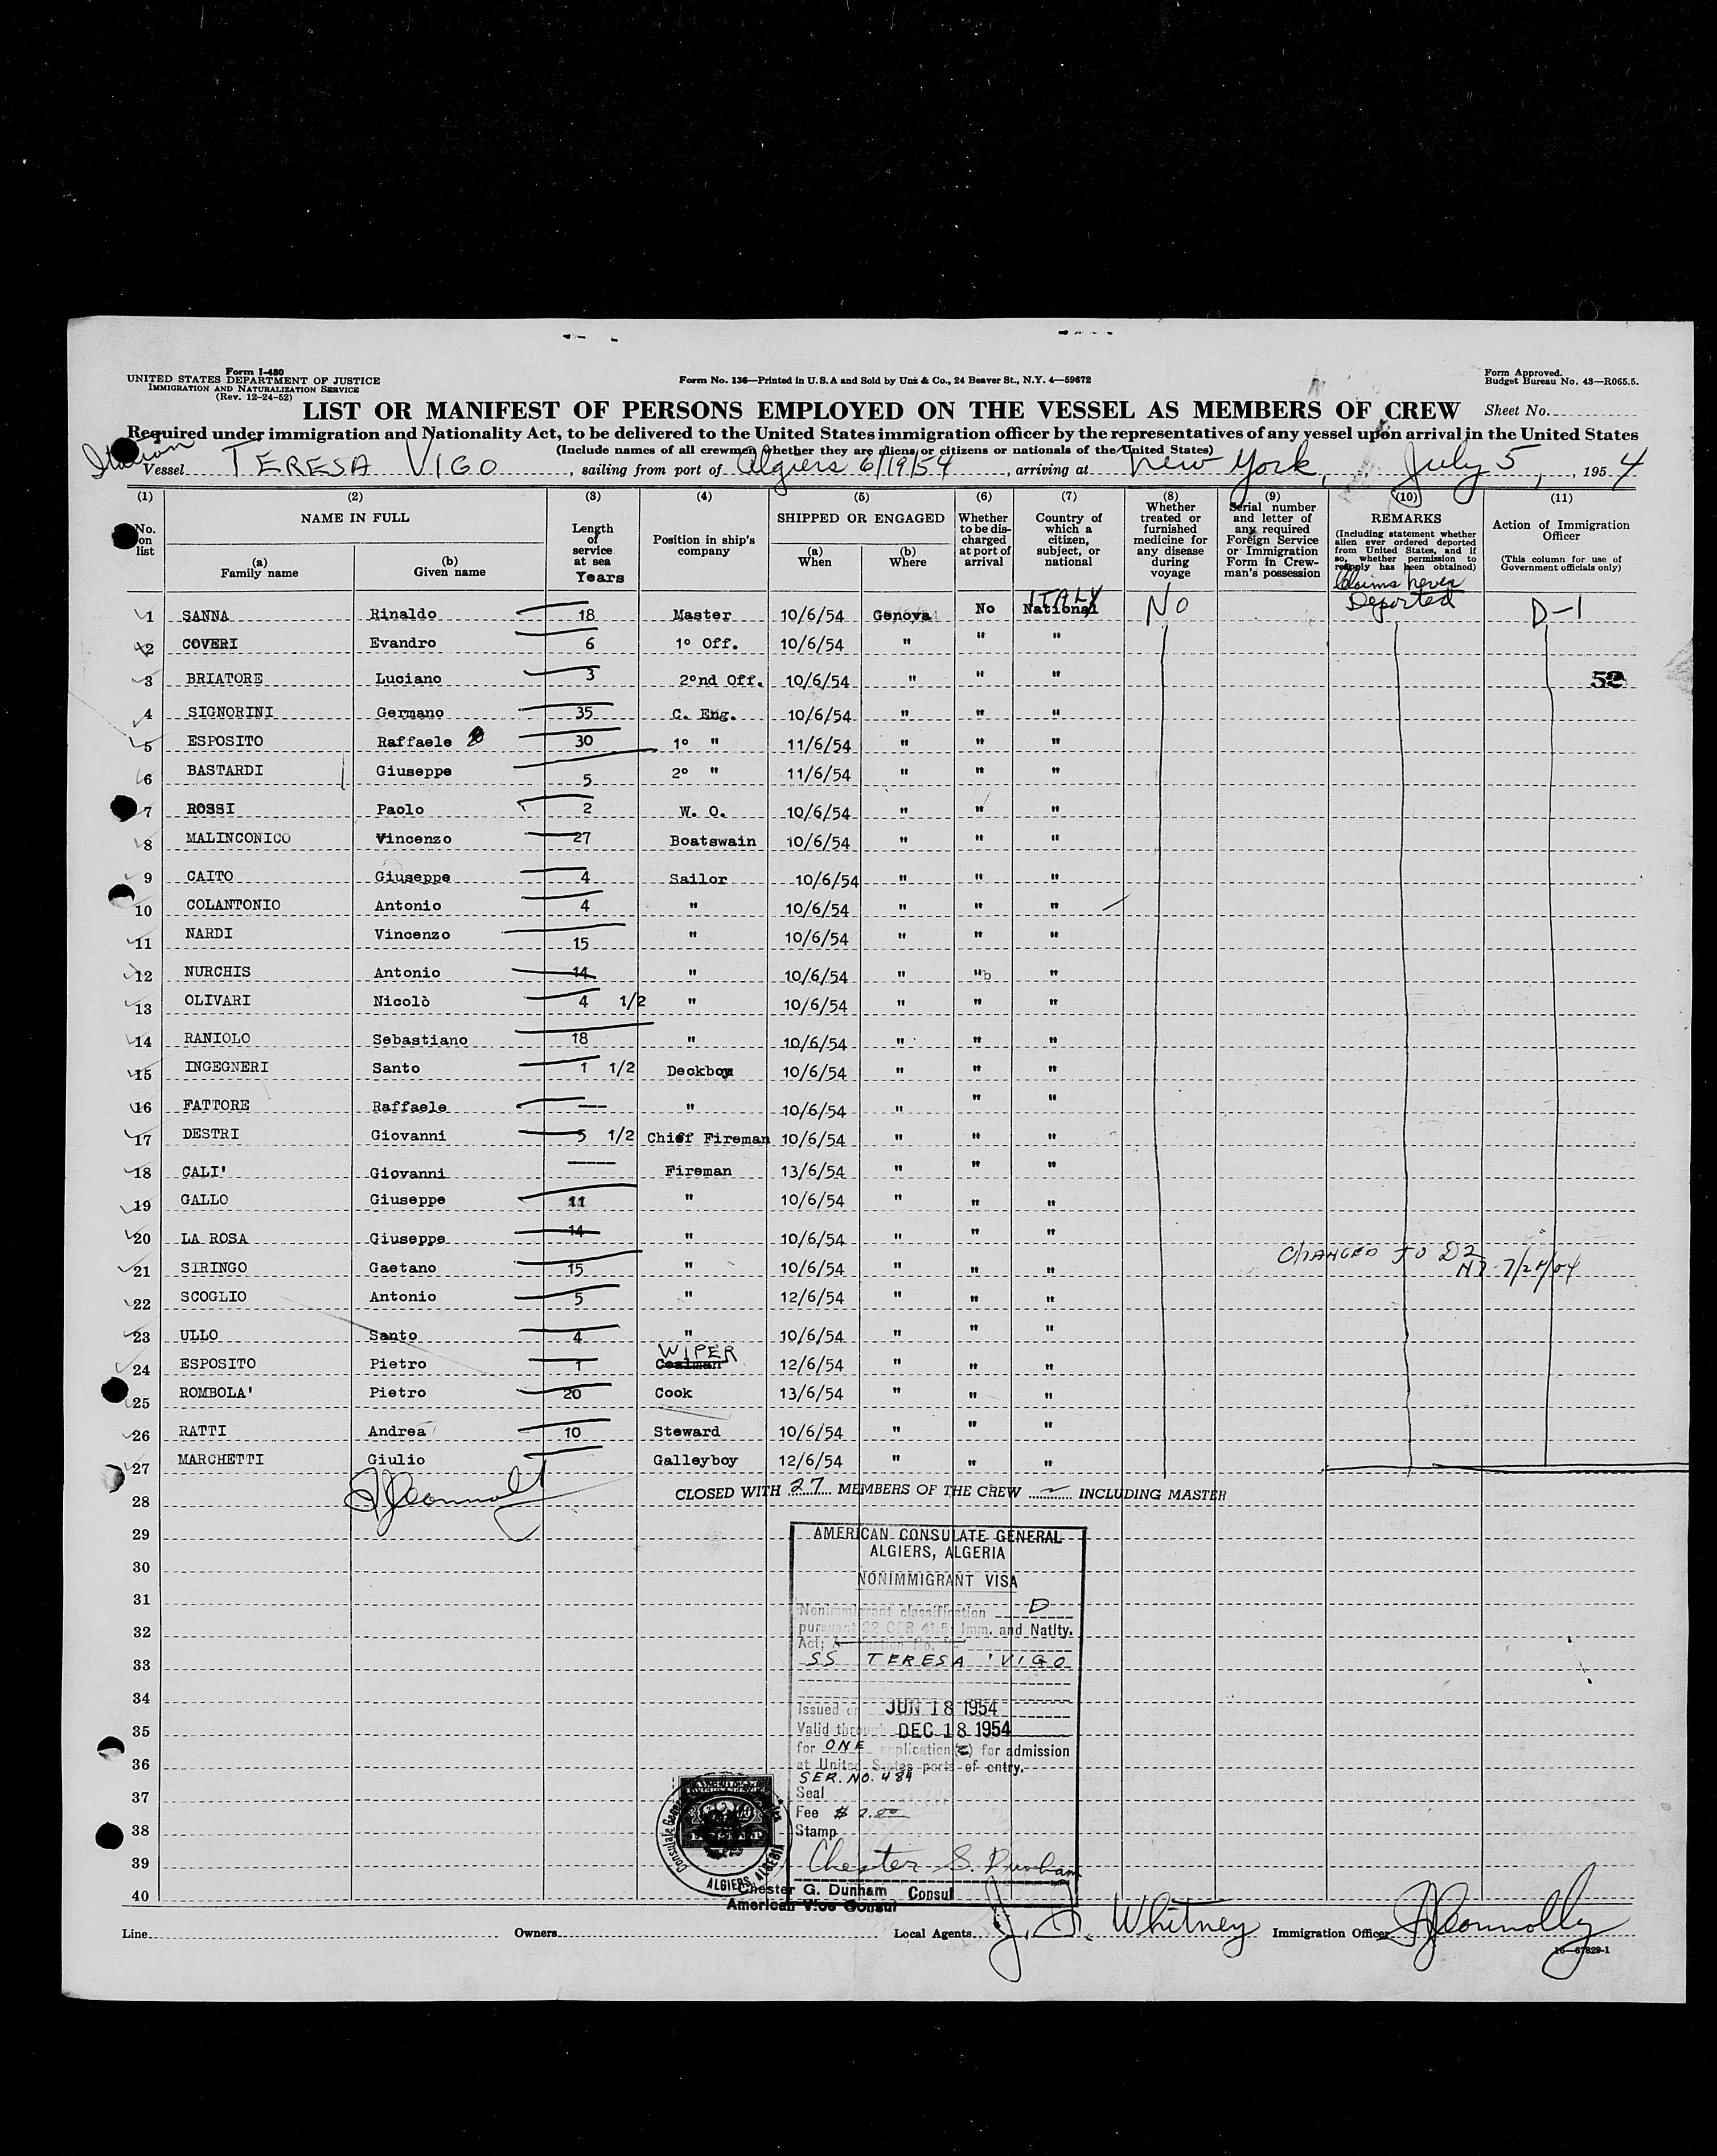 Form I-480
UNITED STATES DEPARTMENT OF JUSTICE
IMMIGRATION AND NATURALIZATION SERVICE
(Rev. 12-24-52)
Form No. 136—Printed in U.S.A and Sold by Unz & Co., 24 Beaver St., N.Y. 4—59672
Form Approved.
Budget Bureau No. 43—R065.5.
LIST OR MANIFEST OF PERSONS EMPLOYED ON THE VESSEL AS MEMBERS OF CREW Sheet No.
Required under immigration and Nationality Act, to be delivered to the United States immigration officer by the representatives of any vessel upon arrival in the United States
(Include names of all crewmen whether they are aliens or citizens or nationals of the United States)
Italian
Vessel TERESA VIGO, sailing from port of Algiers 6/19/54, arriving at New York, July 5, 1954
(1) (2) (3) (4) (5) (6) (7) (8) (9) (10) (11)
No. on list
NAME IN FULL
(a) Family name
(b) Given name
Length of service at sea
Years
Position in ship's company
SHIPPED OR ENGAGED
(a) When
(b) Where
Whether to be discharged at port of arrival
Country of which a citizen, subject, or national
Whether treated or furnished medicine for any disease during voyage
Serial number and letter of any required Foreign Service or Immigration Form in Crewman's possession
REMARKS
(Including statement whether alien ever ordered deported from United States, and if so, whether permission to reapply has been obtained)
Action of Immigration Officer
(This column for use of Government officials only)
Claims never
Deported
ITALY
1 SANNA Rinaldo 18 Master 10/6/54 Genova No National No D-1
2 COVERI Evandro 6 1° Off. 10/6/54 " " "
3 BRIATORE Luciano 3 2°nd Off. 10/6/54 " " " 52
4 SIGNORINI Germano 35 C. Eng. 10/6/54 " " "
5 ESPOSITO Raffaele 30 1° " 11/6/54 " " "
6 BASTARDI Giuseppe 5 2° " 11/6/54 " " "
7 ROSSI Paolo 2 W. O. 10/6/54 " " "
8 MALINCONICO Vincenzo 27 Boatswain 10/6/54 " " "
9 CAITO Giuseppe 4 Sailor 10/6/54 " " "
10 COLANTONIO Antonio 4 " 10/6/54 " " "
11 NARDI Vincenzo 15 " 10/6/54 " " "
12 NURCHIS Antonio 14 " 10/6/54 " " "
13 OLIVARI Nicolò 4 1/2 " 10/6/54 " " "
14 RANIOLO Sebastiano 18 " 10/6/54 " " "
15 INGEGNERI Santo 1 1/2 Deckboy 10/6/54 " " "
16 FATTORE Raffaele --- " 10/6/54 " " "
17 DESTRI Giovanni 5 1/2 Chief Fireman 10/6/54 " " "
18 CALI' Giovanni ---- Fireman 13/6/54 " " "
19 GALLO Giuseppe 11 " 10/6/54 " " "
20 LA ROSA Giuseppe 14 " 10/6/54 " " "
CHANGED TO D2
21 SIRINGO Gaetano 15 " 10/6/54 " " "
22 SCOGLIO Antonio 5 " 12/6/54 " " "
23 ULLO Santo 4 " 10/6/54 " " "
WIPER
24 ESPOSITO Pietro 1 Coalman 12/6/54 " " "
25 ROMBOLA' Pietro 20 Cook 13/6/54 " " "
26 RATTI Andrea 10 Steward 10/6/54 " " "
27 MARCHETTI Giulio Galleyboy 12/6/54 " " "
28 CLOSED WITH 27 MEMBERS OF THE CREW INCLUDING MASTER
29
30
31
32
33
34
35
36
37
38
39
40
AMERICAN CONSULATE GENERAL
ALGIERS, ALGERIA
NONIMMIGRANT VISA
Nonimmigrant classification D
pursuant 22 CFR 41.5 Imm. and Natlty.
Act;
SS TERESA VIGO
Issued on JUN 18 1954
Valid through DEC 18 1954
for ONE application(s) for admission
at United States ports of entry.
SER. NO. 484
Seal
Fee $ 2.00
Stamp
Chester G. Dunham
Chester G. Dunham Consul
American Vice Consul
Consulate General
ALGIERS, ALGERIA
Line Owners Local Agents J. F. Whitney Immigration Officer FJConnolly
16—67829-1